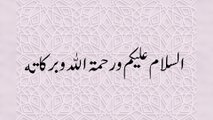 السلام علیکم ورحمۃ اللہ وبرکاتہ